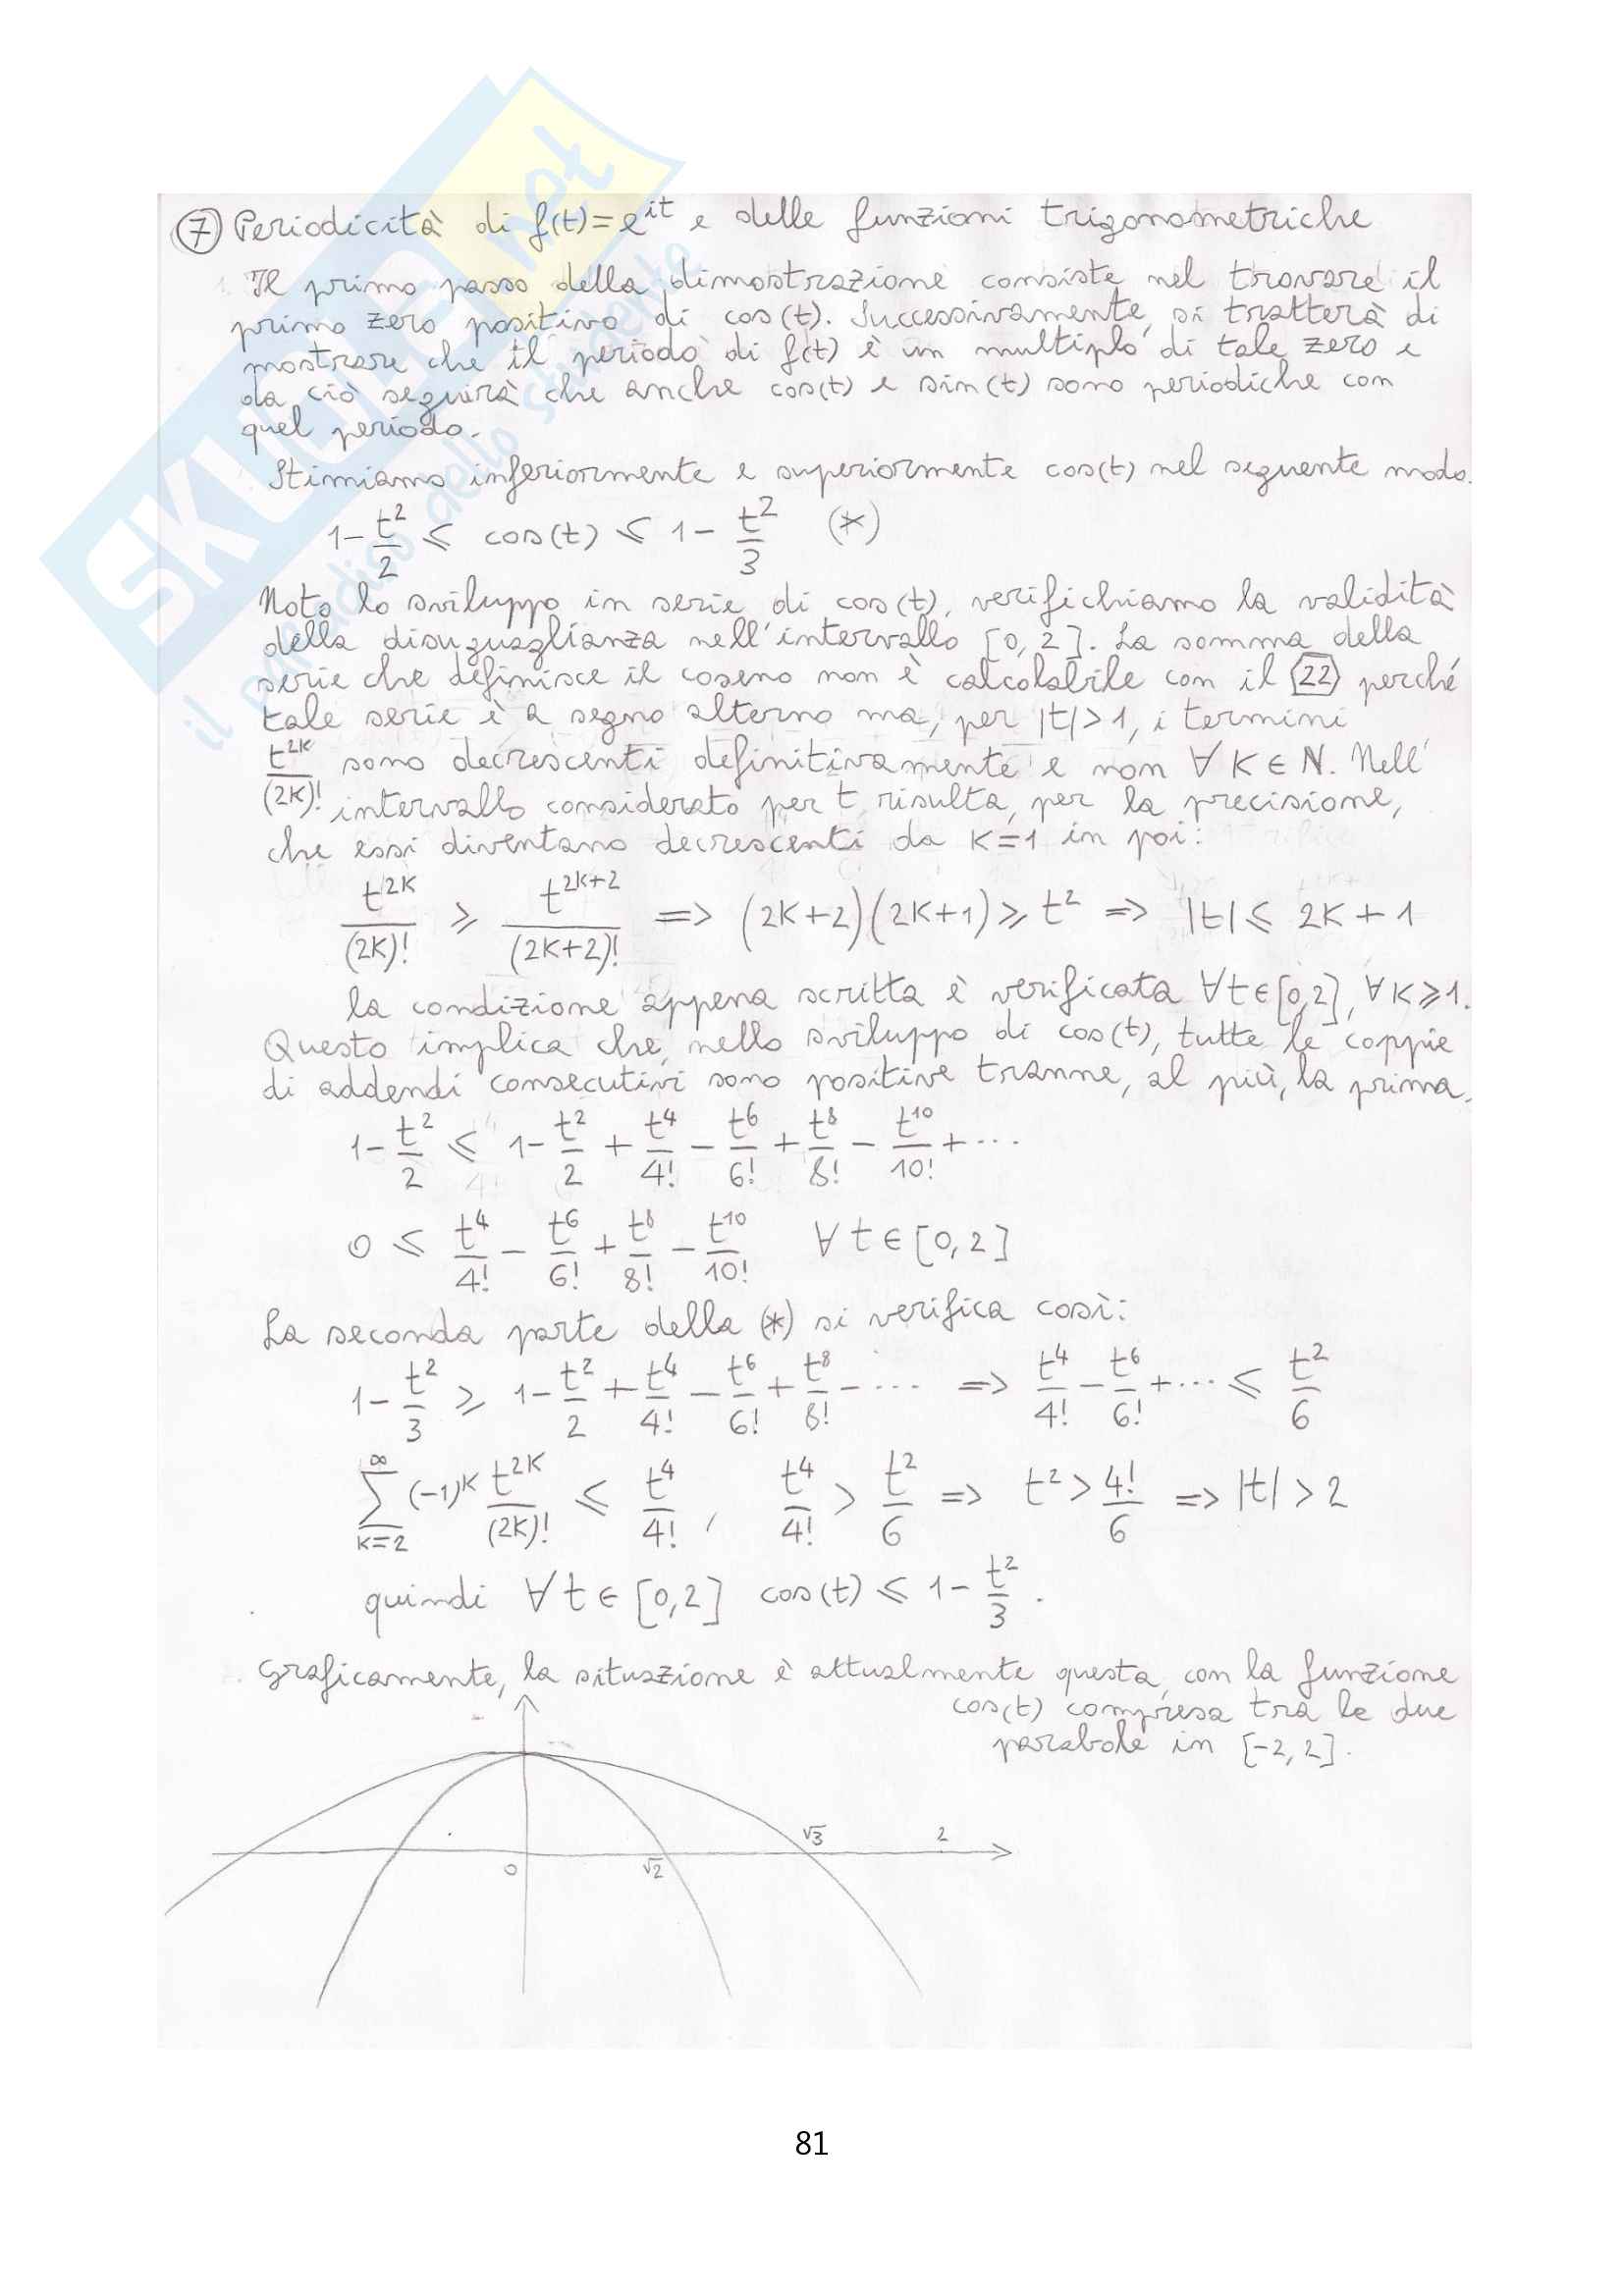 SKUOLA.net
il paradiso dello studente
7 Periodicità di f(t)=e^{it} e delle funzioni trigonometriche
Il primo passo della dimostrazione consiste nel trovare il
primo zero positivo di cos(t). Successivamente, si tratterà di
mostrare che il periodo di f(t) è un multiplo di tale zero e
da ciò seguirà che anche cos(t) e sin(t) sono periodiche con
quel periodo.
Stimiamo inferiormente e superiormente cos(t) nel seguente modo.
1-t²/2 ⩽ cos(t) ⩽ 1-t²/3 (*)
Noto lo sviluppo in serie di cos(t), verifichiamo la validità
della disuguaglianza nell'intervallo [0,2]. La somma della
serie che definisce il coseno non è calcolabile con il 22 perché
tale serie è a segno alterno ma, per |t|>1, i termini
t^{2K}/(2K)! sono decrescenti definitivamente e non ∀ K ∈ N. Nell'
intervallo considerato per t risulta, per la precisione,
che essi diventano decrescenti da K=1 in poi:
t^{2K}/(2K)! ⩾ t^{2K+2}/(2K+2)! => (2K+2)(2K+1)⩾t² => |t|⩽ 2K+1
la condizione appena scritta è verificata ∀t∈[0,2], ∀K⩾1.
Questo implica che, nello sviluppo di cos(t), tutte le coppie
di addendi consecutivi sono positive tranne, al più, la prima.
1-t²/2 ⩽ 1-t²/2+t⁴/4!-t⁶/6!+t⁸/8!-t¹⁰/10!+...
0 ⩽ t⁴/4!-t⁶/6!+t⁸/8!-t¹⁰/10! ∀t∈[0,2]
La seconda parte della (*) si verifica così:
1-t²/3 ⩾ 1-t²/2+t⁴/4!-t⁶/6!+t⁸/8!-... => t⁴/4!-t⁶/6!+... ⩽ t²/6
∑_{K=2}^{∞}(-1)^K t^{2K}/(2K)! ⩽ t⁴/4!, t⁴/4! > t²/6 => t²>4!/6 => |t|>2
quindi ∀t∈[0,2] cos(t) ⩽ 1-t²/3.
Graficamente, la situazione è attualmente questa, con la funzione
cos(t) compresa tra le due
parabole in [-2,2].
0 √2 √3 2
81